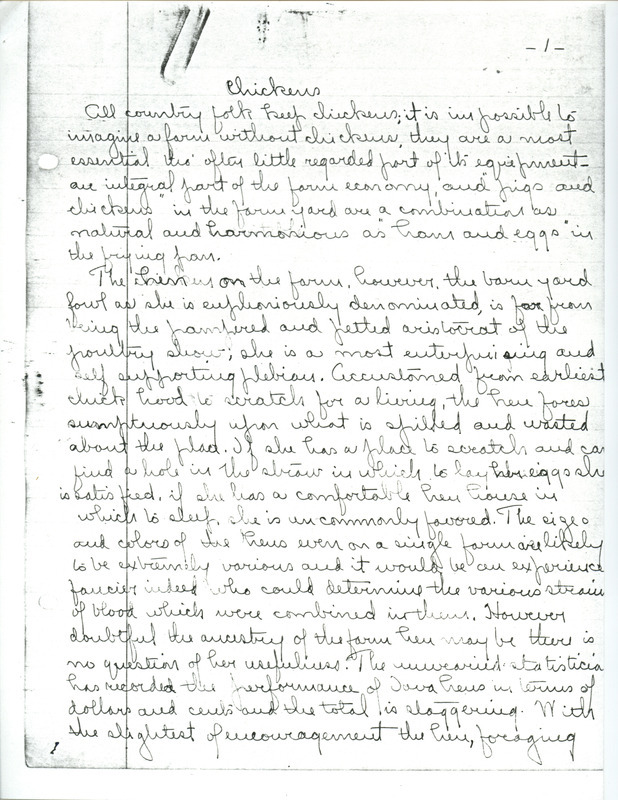 -1-
Chickens
All country folk keep chickens; it is impossible to
imagine a farm without chickens, they are a most
essential tho' often little regarded part of its equipment-
an integral part of the farm economy, and "pigs and
chickens" in the farm yard are a combination as
natural and harmonious as "ham and eggs" in
the frying pan.
The hen on the farm, however, the barn yard
fowl as she is euphoniously denominated, is far from
being the pampered and petted aristocrat of the
poultry show; she is a most enterprising and
self supporting plebian. Accustomed from earliest
chick hood to scratch for a living, the hen fares
sumptuously upon what is spilled and wasted
about the place. If she has a place to scratch and can
find a hole in the straw in which to lay her eggs she
is satisfied, if she has a comfortable hen house in
which to sleep, she is uncommonly favored. The sizes
and colors of the hens even on a single farm are likely
to be extremely various and it would be an experience
fancier indeed who could determine the various strain
of blood which were combined in them. However
doubtful the ancestry of the farm hen may be there is
no question of her usefulness. The unwearied statisticia
has recorded the performance of Iowa hens in terms of
dollars and cents and the total is staggering. With
the slightest of encouragement the hen, foraging
1